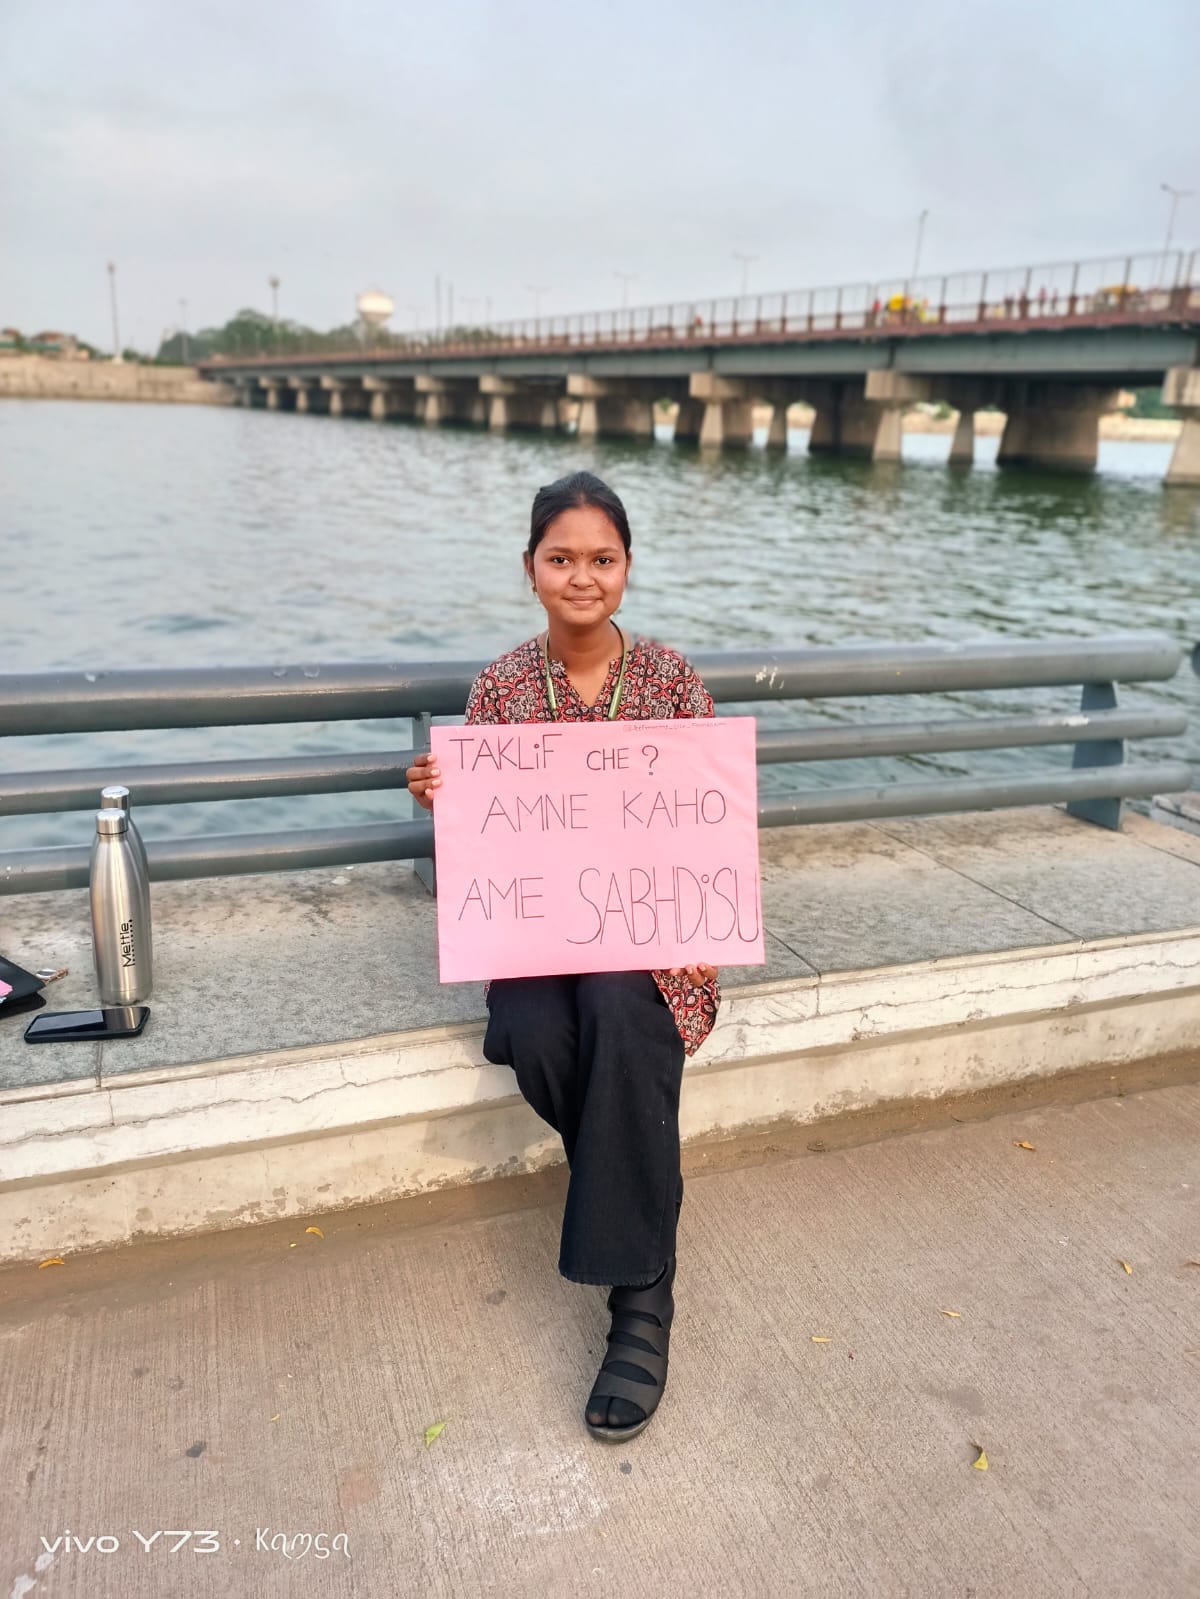 TAKLiF CHE ?
AMNE KAHO
AME SABHDiSU
Mettle.
vivo Y73 · Kamsa